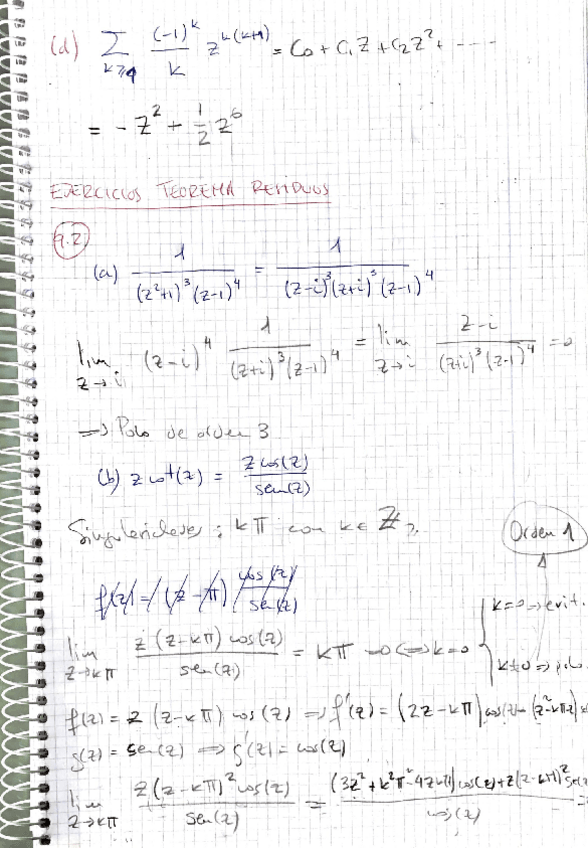 (d) Σ_{k≥1} (-1)^k/k z^{k(k+1)} = C₀ + C₁Z + C₂Z² + ----
= - Z² + 1/2 z⁶
EJERCICIOS TEOREMA RESIDUOS
9.2
(a) 1/((z²+1)³(z-1)⁴) = 1/((z-i)³(z+i)³(z-1)⁴)
lim_{z→i} (z-i)⁴ 1/((z+i)³(z-1)⁴) = lim_{z→i} (z-i)/((z+i)³(z-1)⁴) = 0
⇒ Polo de orden 3
(b) z cot(z) = z cos(z)/sen(z)
Singularidades: kπ con k ∈ ℤ
Orden 1
f(z) = (z-π) cos(z)/sen(z)
lim_{z→kπ} z(z-kπ)cos(z)/sen(z) = kπ = 0 ⇔ k=0
k=0 → evit.
k≠0 ⇒ polo
f(z) = z(z-kπ)cos(z) ⇒ f'(z) = (2z-kπ)cos(z) - (z²-kπz)
g(z) = sen(z) ⇒ g'(z) = cos(z)
lim_{z→kπ} z(z-kπ)²cos(z)/sen(z) = ((3z²+k²π²-4zkπ)cos(z)+z(z-kπ)² sen(z))/cos(z) =